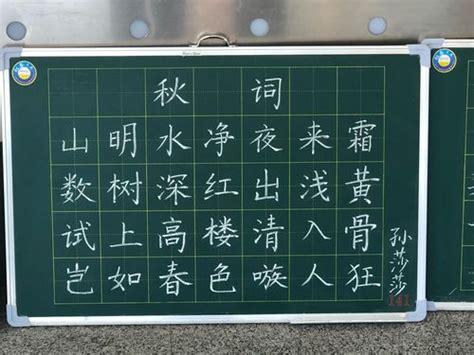 秋词
山明水净夜来霜
数树深红出浅黄
试上高楼清入骨
岂如春色嗾人狂
孙莎莎
141